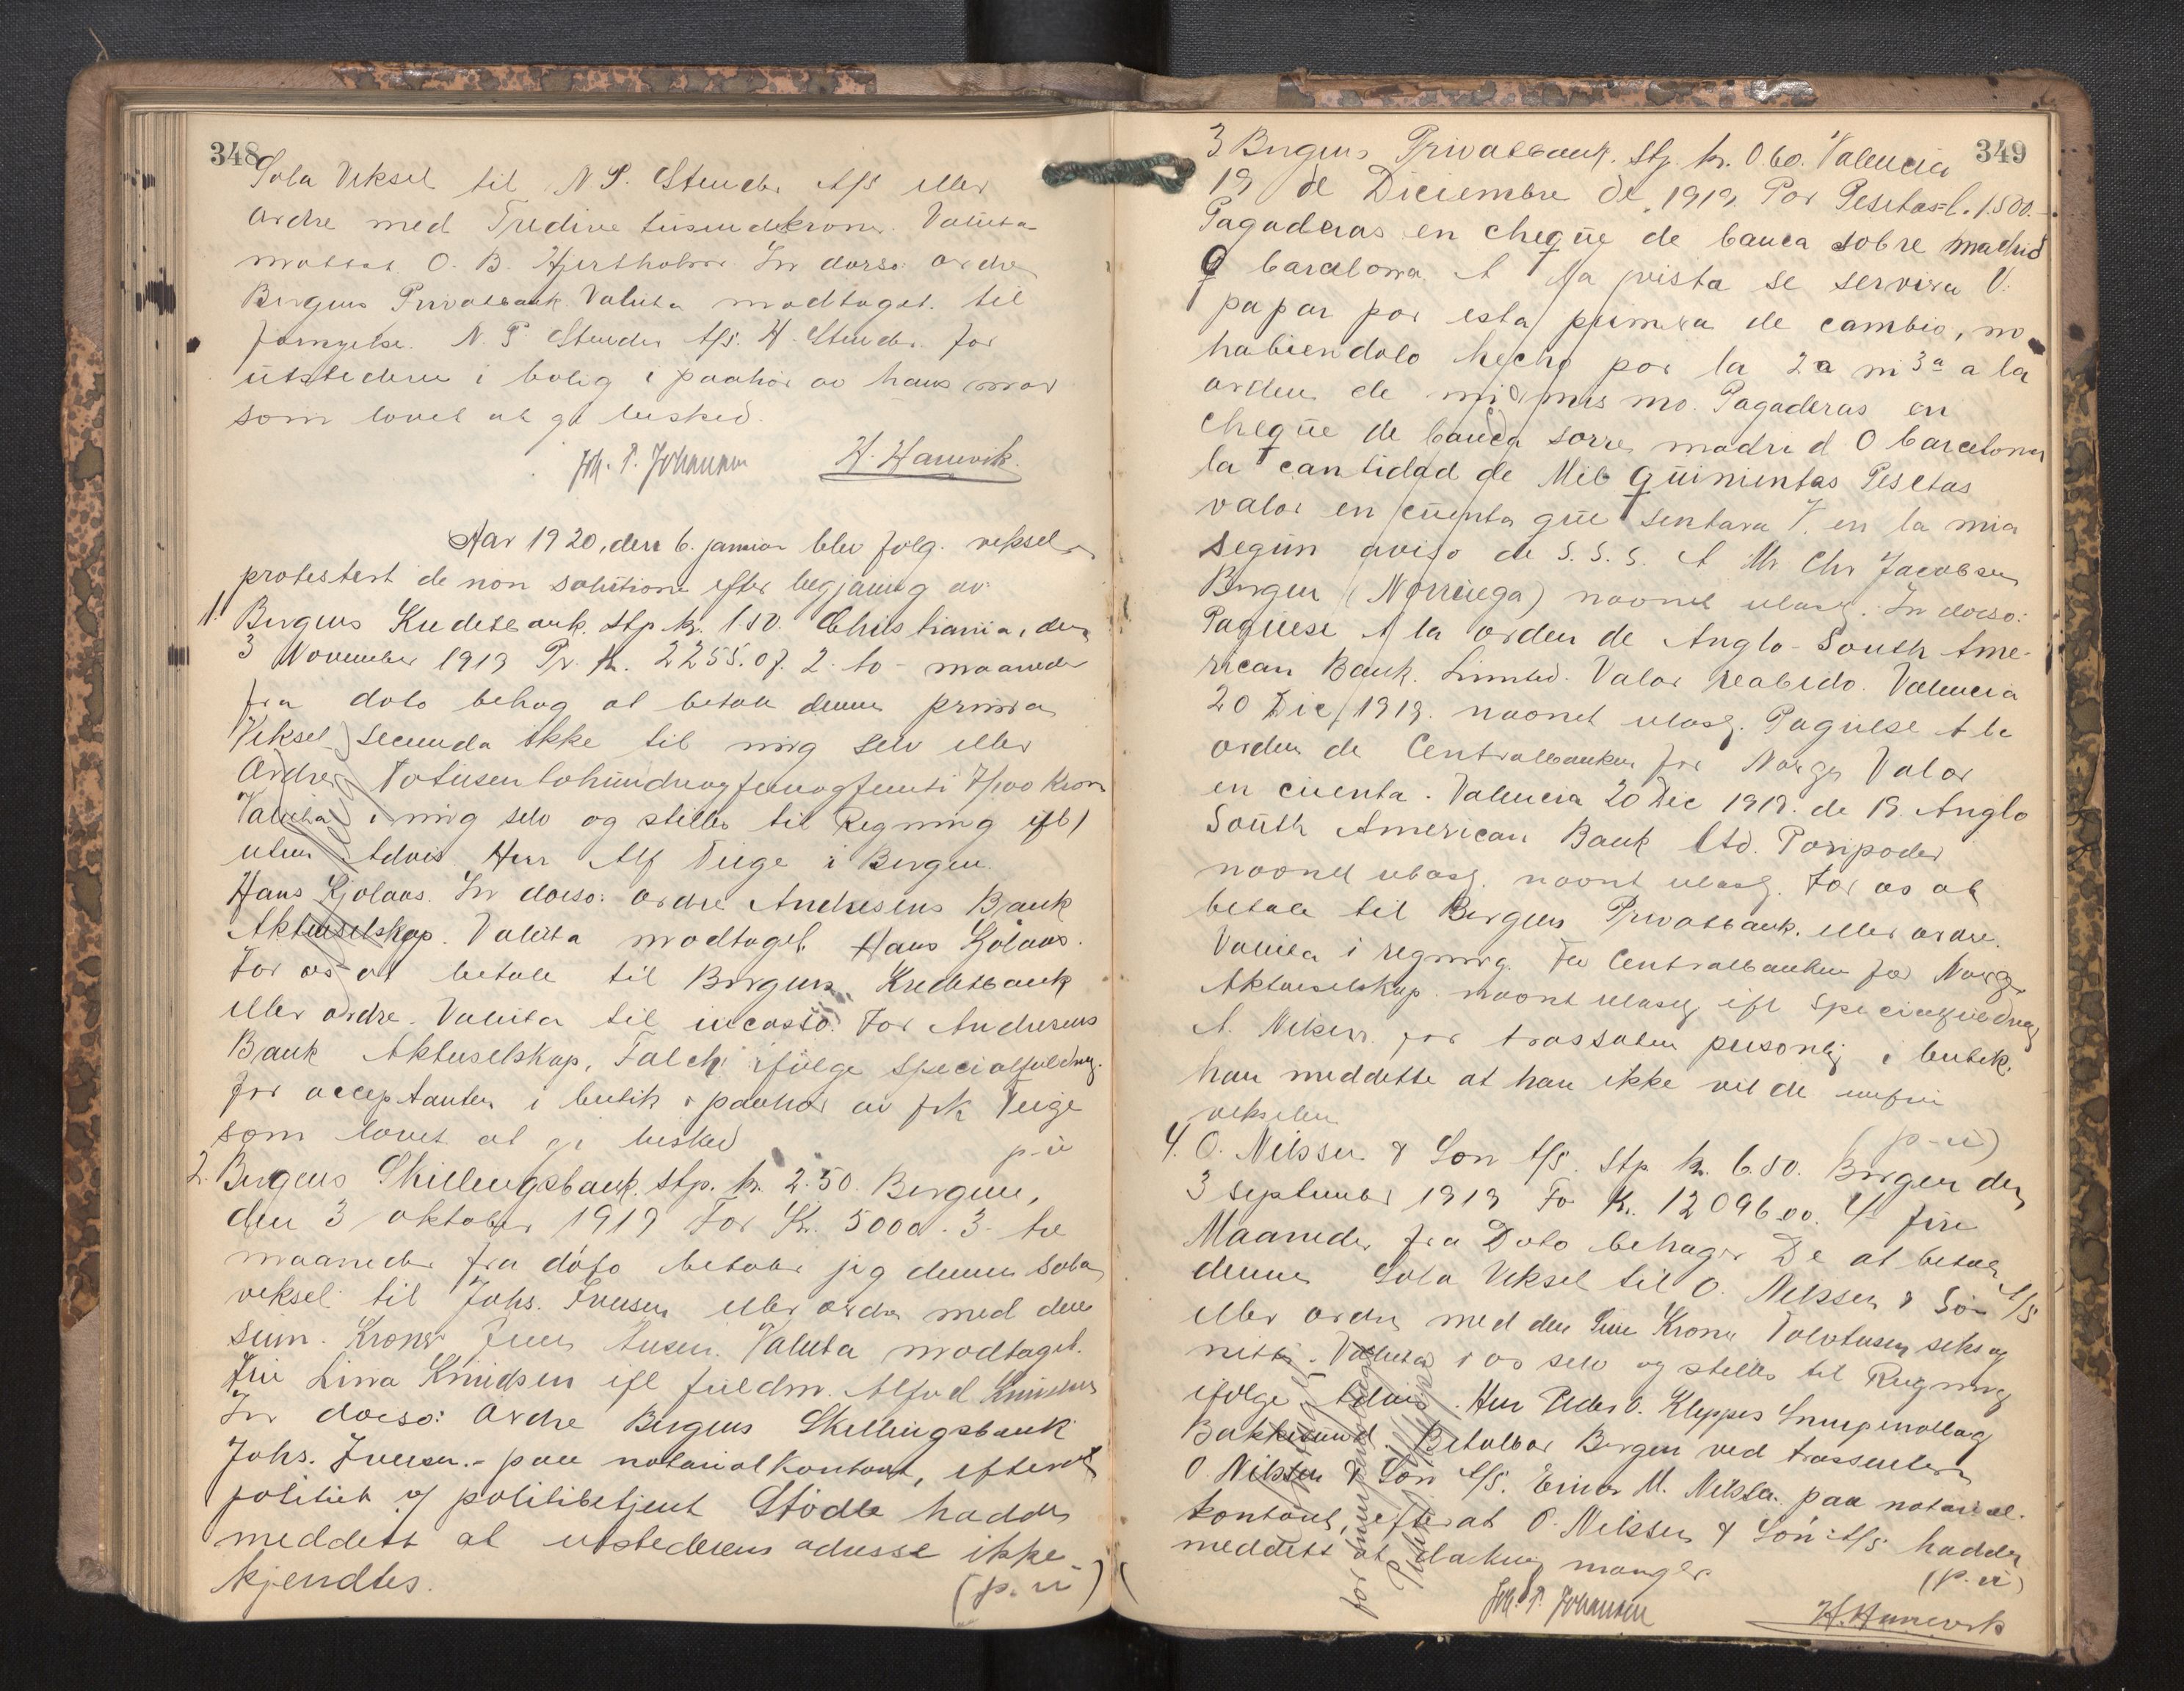 348
Sola Veksel til N P. Stender A/S eller
ordre med Tredive tusindekroner. Valuta
motat O. B. Hjertholm. In dorso ordre
Bergens Privatbank. Valuta modtaget. til
fornyelse. N. P. Stender A/S. H. Stender. for
utstederen i bolig i paahör av hans mor
som lovet at gi besked.
Joh. P. Johansen H. Hanevik.
Aar 1920, den 6. januar blev fölg. veksel
protestert de non solutione efter begjæring av
1. Bergens Kreditbank. Stp. kr. 1.50. Christiania, den
3 November 1919 Pr. Kr. 2255.07. 2. to - maaneder
fra dato behag at betale denne prima
Veksel secunda ikke til mig selv eller
Ordre Totusentohundreogfemogfemti 7/100 Kron
Valuta i mig selv og stilles til Regning ifl
uten Advis Herr Alf Teige i Bergen.
Hans Kjolaas. In dorso: ordre Andresens Bank
Aktieselskap. Valuta modtaget Hans Kjolaas.
For os at betale til Bergens Kreditbank
eller ordre. Valuta til incasso. For Andresens
Bank Aktieselskap, Falch ifölge Specialfuldm.
for acceptanten i butik i paahör av frk Teige
som lovet at gi besked p-u
2. Bergens Skillingsbank. Stp. kr. 2.50. Bergen,
den 3 oktober 1919 For Kr. 5000. 3- tre
maaneder fra dato betaler jeg denne sola
veksel til Johs. Iversen eller ordre med den
sum. Kroner Fem tusen. Valuta modtaget.
Fru Lina Knudsen ifl fuldm. Alfred Knudsen
In dorso: Ordre Bergens Skillingsbank
Johs. Iversen.- paa notarialkontoret, efterat
politiet v/ politibetjent Stödle hadde
meddelt at utstederens adresse ikke
kjendtes. (p.u)
349
3 Bergens Privatbank. Stp. kr. 0.60. Valencia
19 de Diciembre de 1919. Por Pesetas=l. 1.500.-
Pagaderas en cheque de banca sobre madrid
O barcelona A la vista se servira V.
papar por esta primera de cambio, no
habiendolo hecho por la 2a ni 3a a la
orden de mi mismo. Pagaderas en
cheque de banca sorre madrid O barcelona
la cantidad de Mil quinientas Pesetas
valor en cuenta que sentara V. en la mia
segun aviso de S.S.S. A Mr Chr Jacobsen
Bergen (Norriega) navnet ulæsl. In dorso:
Paguese A la orden de Anglo-South Ame-
rican Bank. Limited. Valor reabido. Valencia
20 Dic 1919. navnet ulæsl. Paguese A la
orden de Centralbanken for Norge Valor
en cuenta. Valencia 20 Dic 1919. de 19. Anglo
South American Bank Ltd. Poripoder
navnet ulæsl. navnet ulæsl. For os at
betale til Bergens Privatbank. eller ordre.
Valuta i regning. For Centralbanken for Norge
Aktieselskap. navnet ulæselig ifl Specialfuldmag
A. Nilsen. for trassaten personlig i butik,
han meddelte at han ikke vilde innfri
vekselen (p-u)
4. O. Nilssen & Sön A/S. Stp. kr. 6.50. Bergen den
3 september 1919 For Kr. 12096.00. 4- fire
Maaneder fra Dato behager De at betale
denne Sola Veksel til O. Nilssen & Sön A/S
eller ordre med den Sum Kroner Tolvtusen seks og
nitti. Valuta i os selv og stilles til Regning
ifölge Advis. Herr Peder O. Kleppes
Bakkesund Betalbar Bergen ved trassenten
O. Nilssen & Sön A/S. Einar M. Nilssen. paa notarial-
kontoret, efterat O. Nilssen & Sön A/S hadde
meddelt at dækning mangler. (p.u)
Joh. P. Johansen H. Hanevik